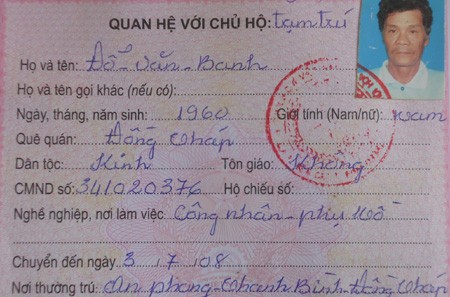 QUAN HỆ VỚI CHỦ HỘ: tạm trú
Họ và tên: Đỗ Văn Banh
Họ và tên gọi khác (nếu có):
Ngày, tháng, năm sinh: 1960 Giới tính (Nam/nữ): Nam
Quê quán: Đồng Tháp
Dân tộc: Kinh Tôn giáo: Không
CMND số: 341020376 Hộ chiếu số:
Nghề nghiệp, nơi làm việc: Công nhân - phụ hồ
Chuyển đến ngày 3 / 7 / 08
Nơi thường trú: An phong - Thanh Bình - Đồng Tháp